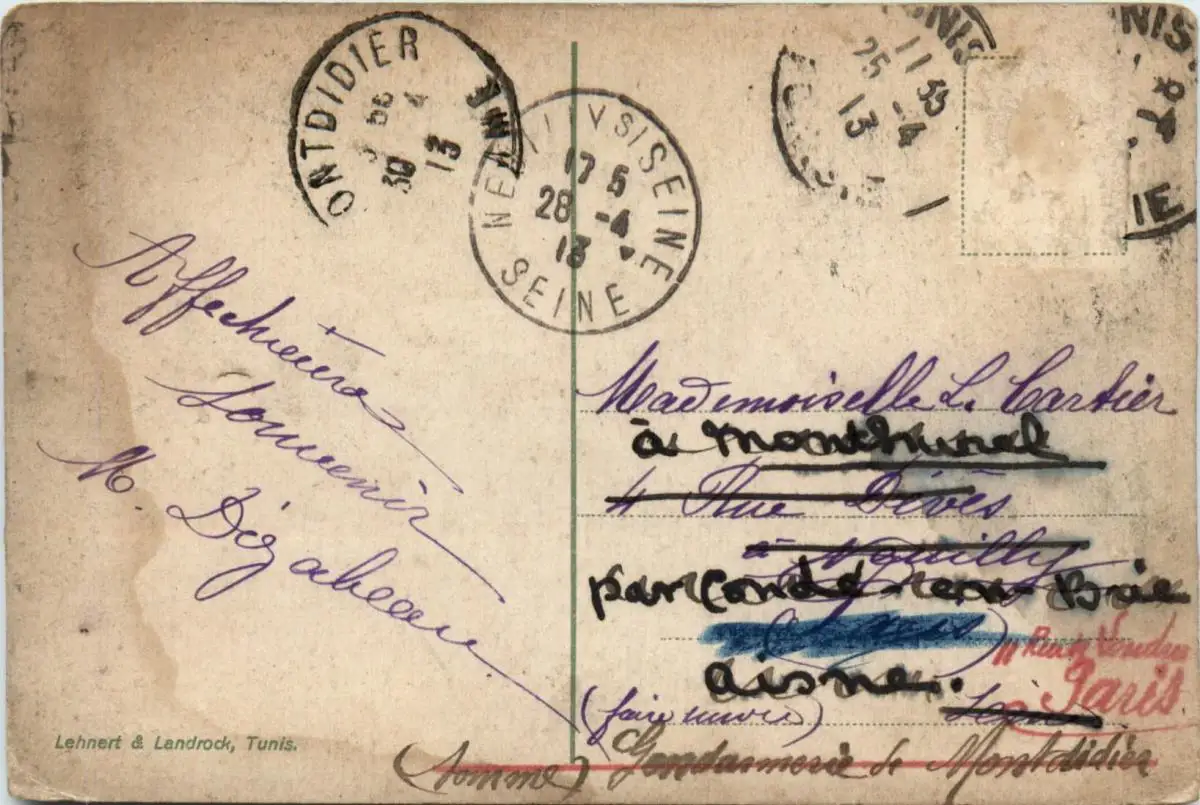 ONTDIDIER
30 4
13
NEUILLYSISEINE
17 5
28 -4
13
SEINE
UNIS
11 35
25 -4
13
NIS
RT.
IE
Affectueux
Souvenir
M. Dizabeau
Mademoiselle L. Cartier
à Monthurel
4 Rue Dives
à Neuilly
par Condé-en-Brie
(Paris)
11 Rue de Londres
Paris
aisne.
(faire suivre)
(Somme) Gendarmerie de Montdidier
Lehnert & Landrock, Tunis.